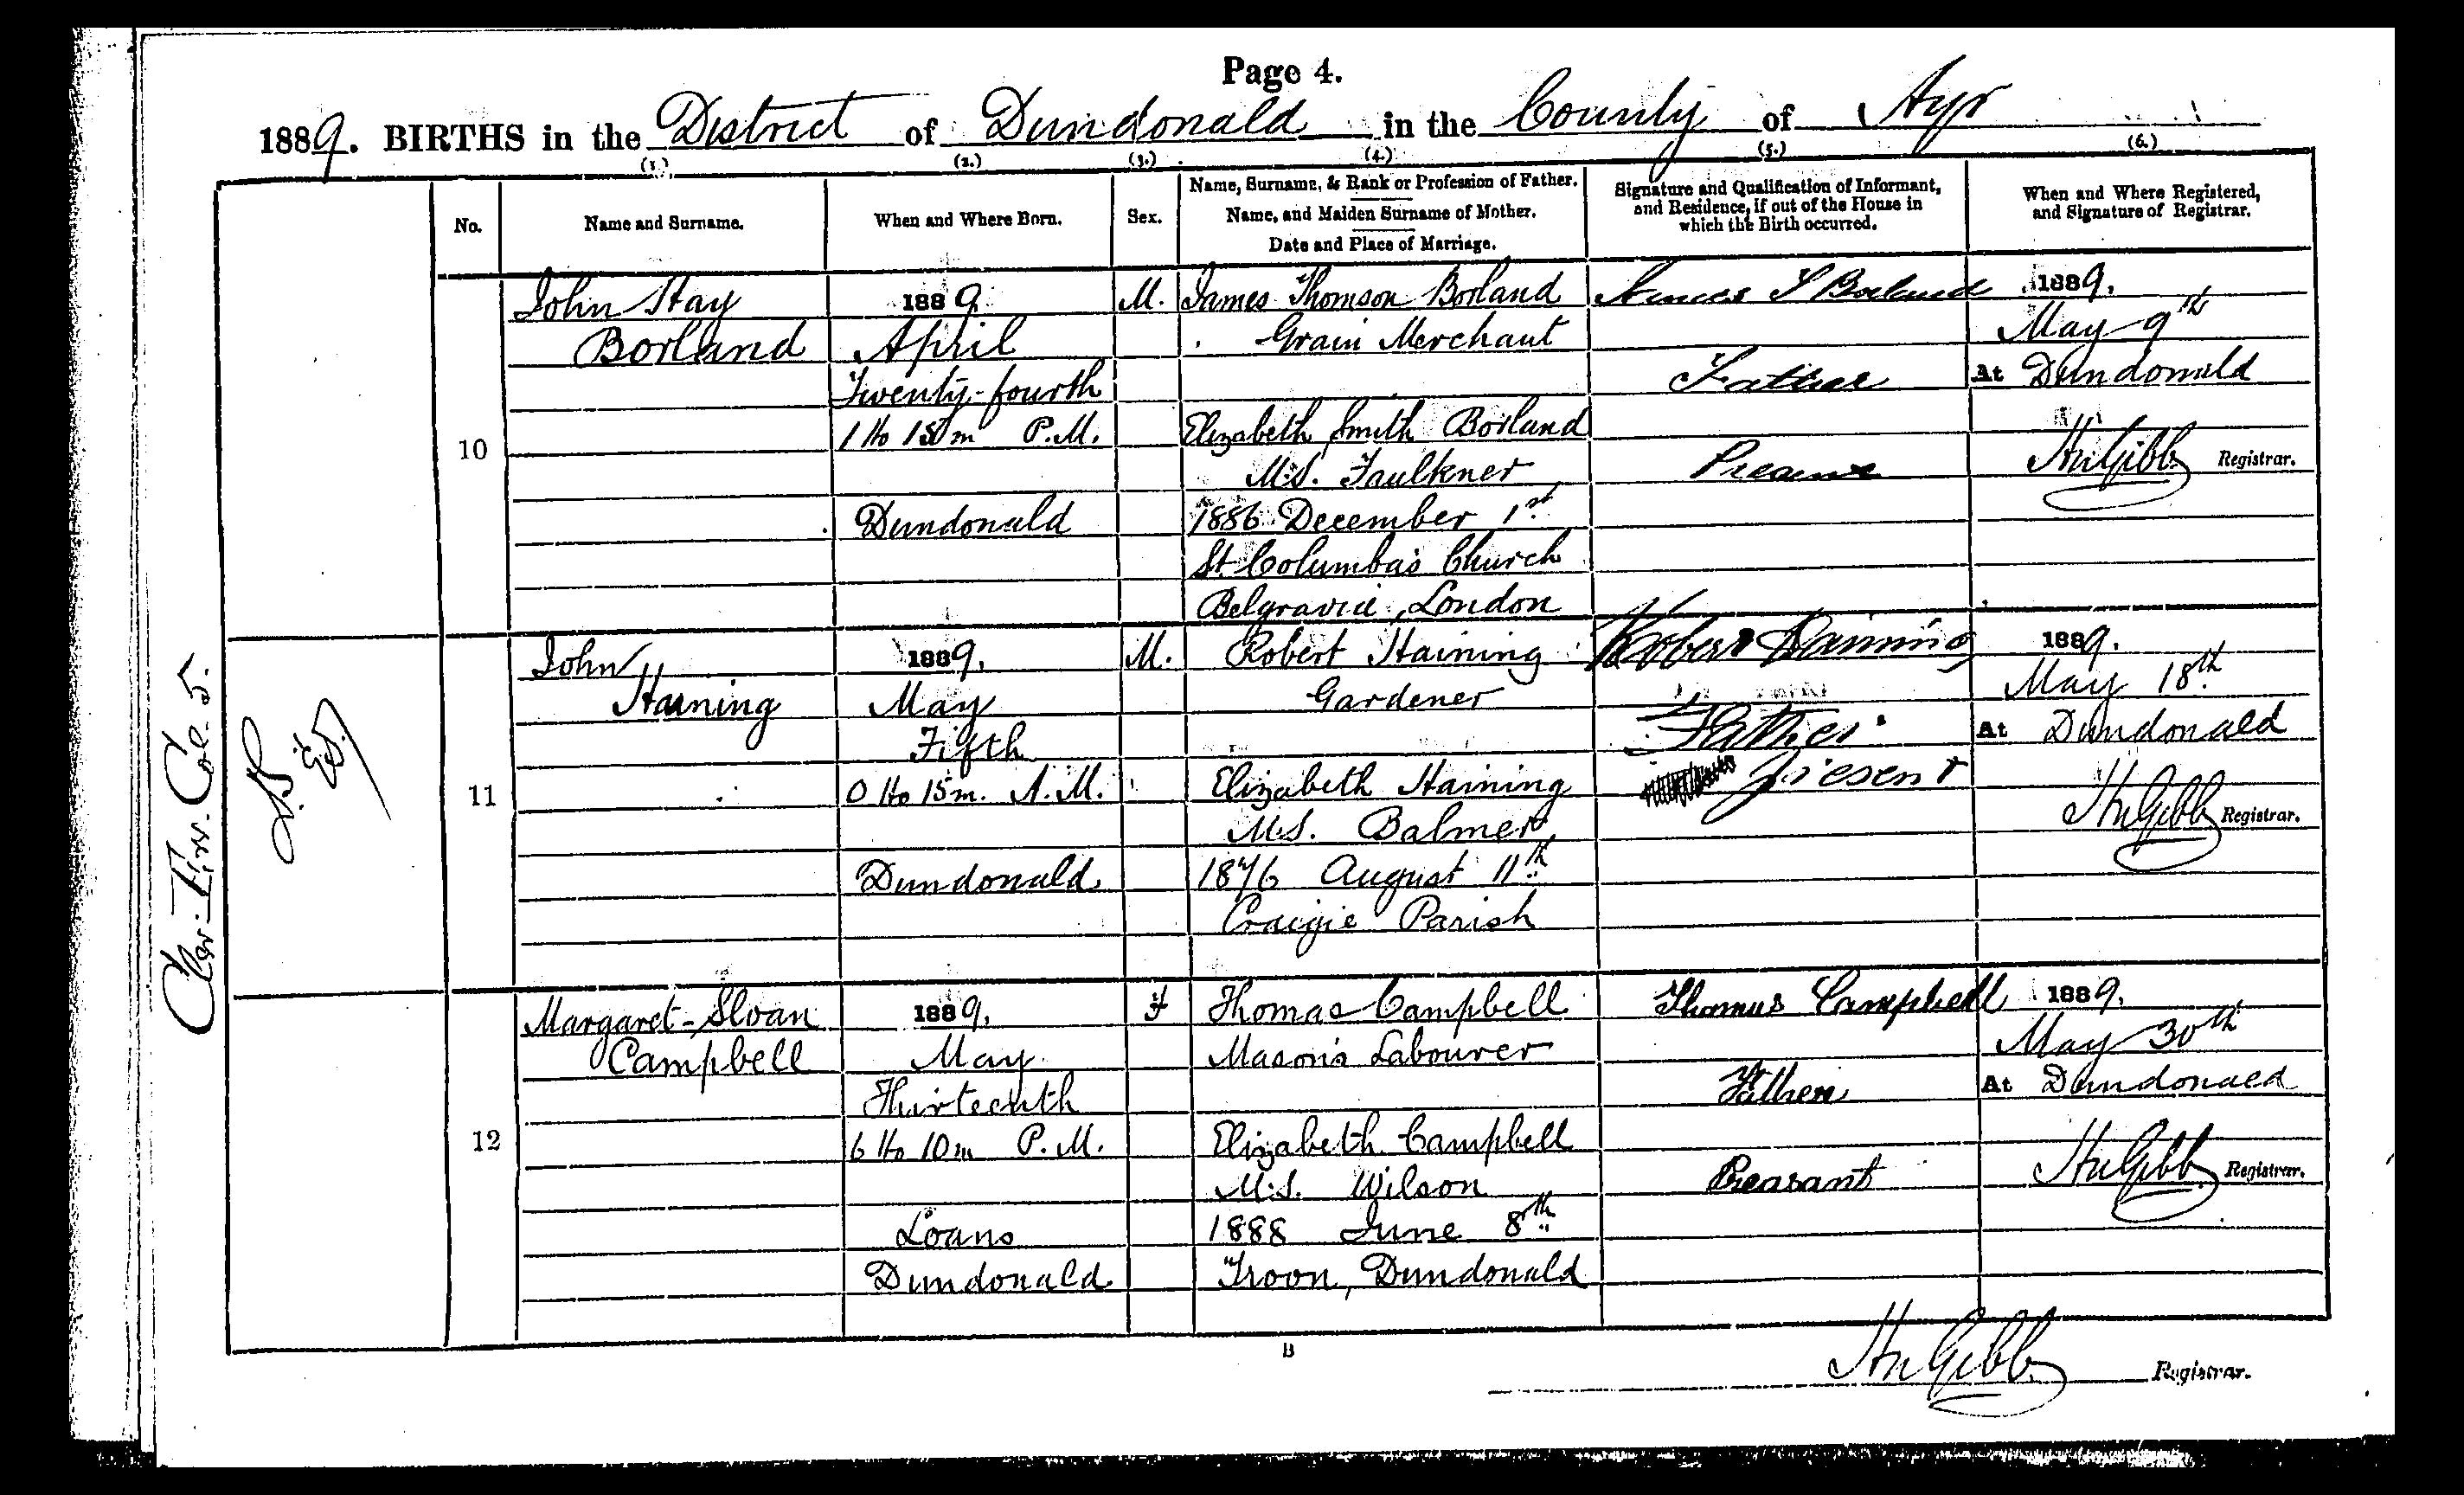 Page 4.
1889. BIRTHS in the District of Dundonald in the County of Ayr
(1.) (2.) (3.) (4.) (5.) (6.)
No.
Name and Surname.
When and Where Born.
Sex.
Name, Surname, & Rank or Profession of Father.
Name, and Maiden Surname of Mother.
Date and Place of Marriage.
Signature and Qualification of Informant,
and Residence, if out of the House in
which the Birth occurred.
When and Where Registered,
and Signature of Registrar.
10
John Hay
Borland
1889
April
Twenty-fourth
1 Ho 15 m P.M.
Dundonald
M.
James Thomson Borland
Grain Merchant
Elizabeth Smith Borland
M.S. Faulkner
1886 December 1st
St. Columba's Church
Belgravia, London
James T Borland
Father
Present
1889.
May 9th
At Dundonald
Hu Gibb
Registrar.
11
John
Haining
1889.
May
Fifth
0 Ho 15 m. A.M.
Dundonald
M.
Robert Haining
Gardener
Elizabeth Haining
M.S. Balmer
1876 August 11th
Craigie Parish
Robert Haining
Father
present
1889.
May 18th
At Dundonald
Hu Gibb
Registrar.
Clér. Err. Col. 5.
12
Margaret-Sloan
Campbell
1889.
May
Thirteenth
6 Ho 10 m P.M.
Loans
Dundonald
F
Thomas Campbell
Mason's Labourer
Elizabeth Campbell
M.S. Wilson
1888 June 8th
Troon, Dundonald
Thomas Campbell
Father
Preasant
1889.
May 30th
At Dundonald
Hu Gibb
Registrar.
B
Hu Gibb Registrar.